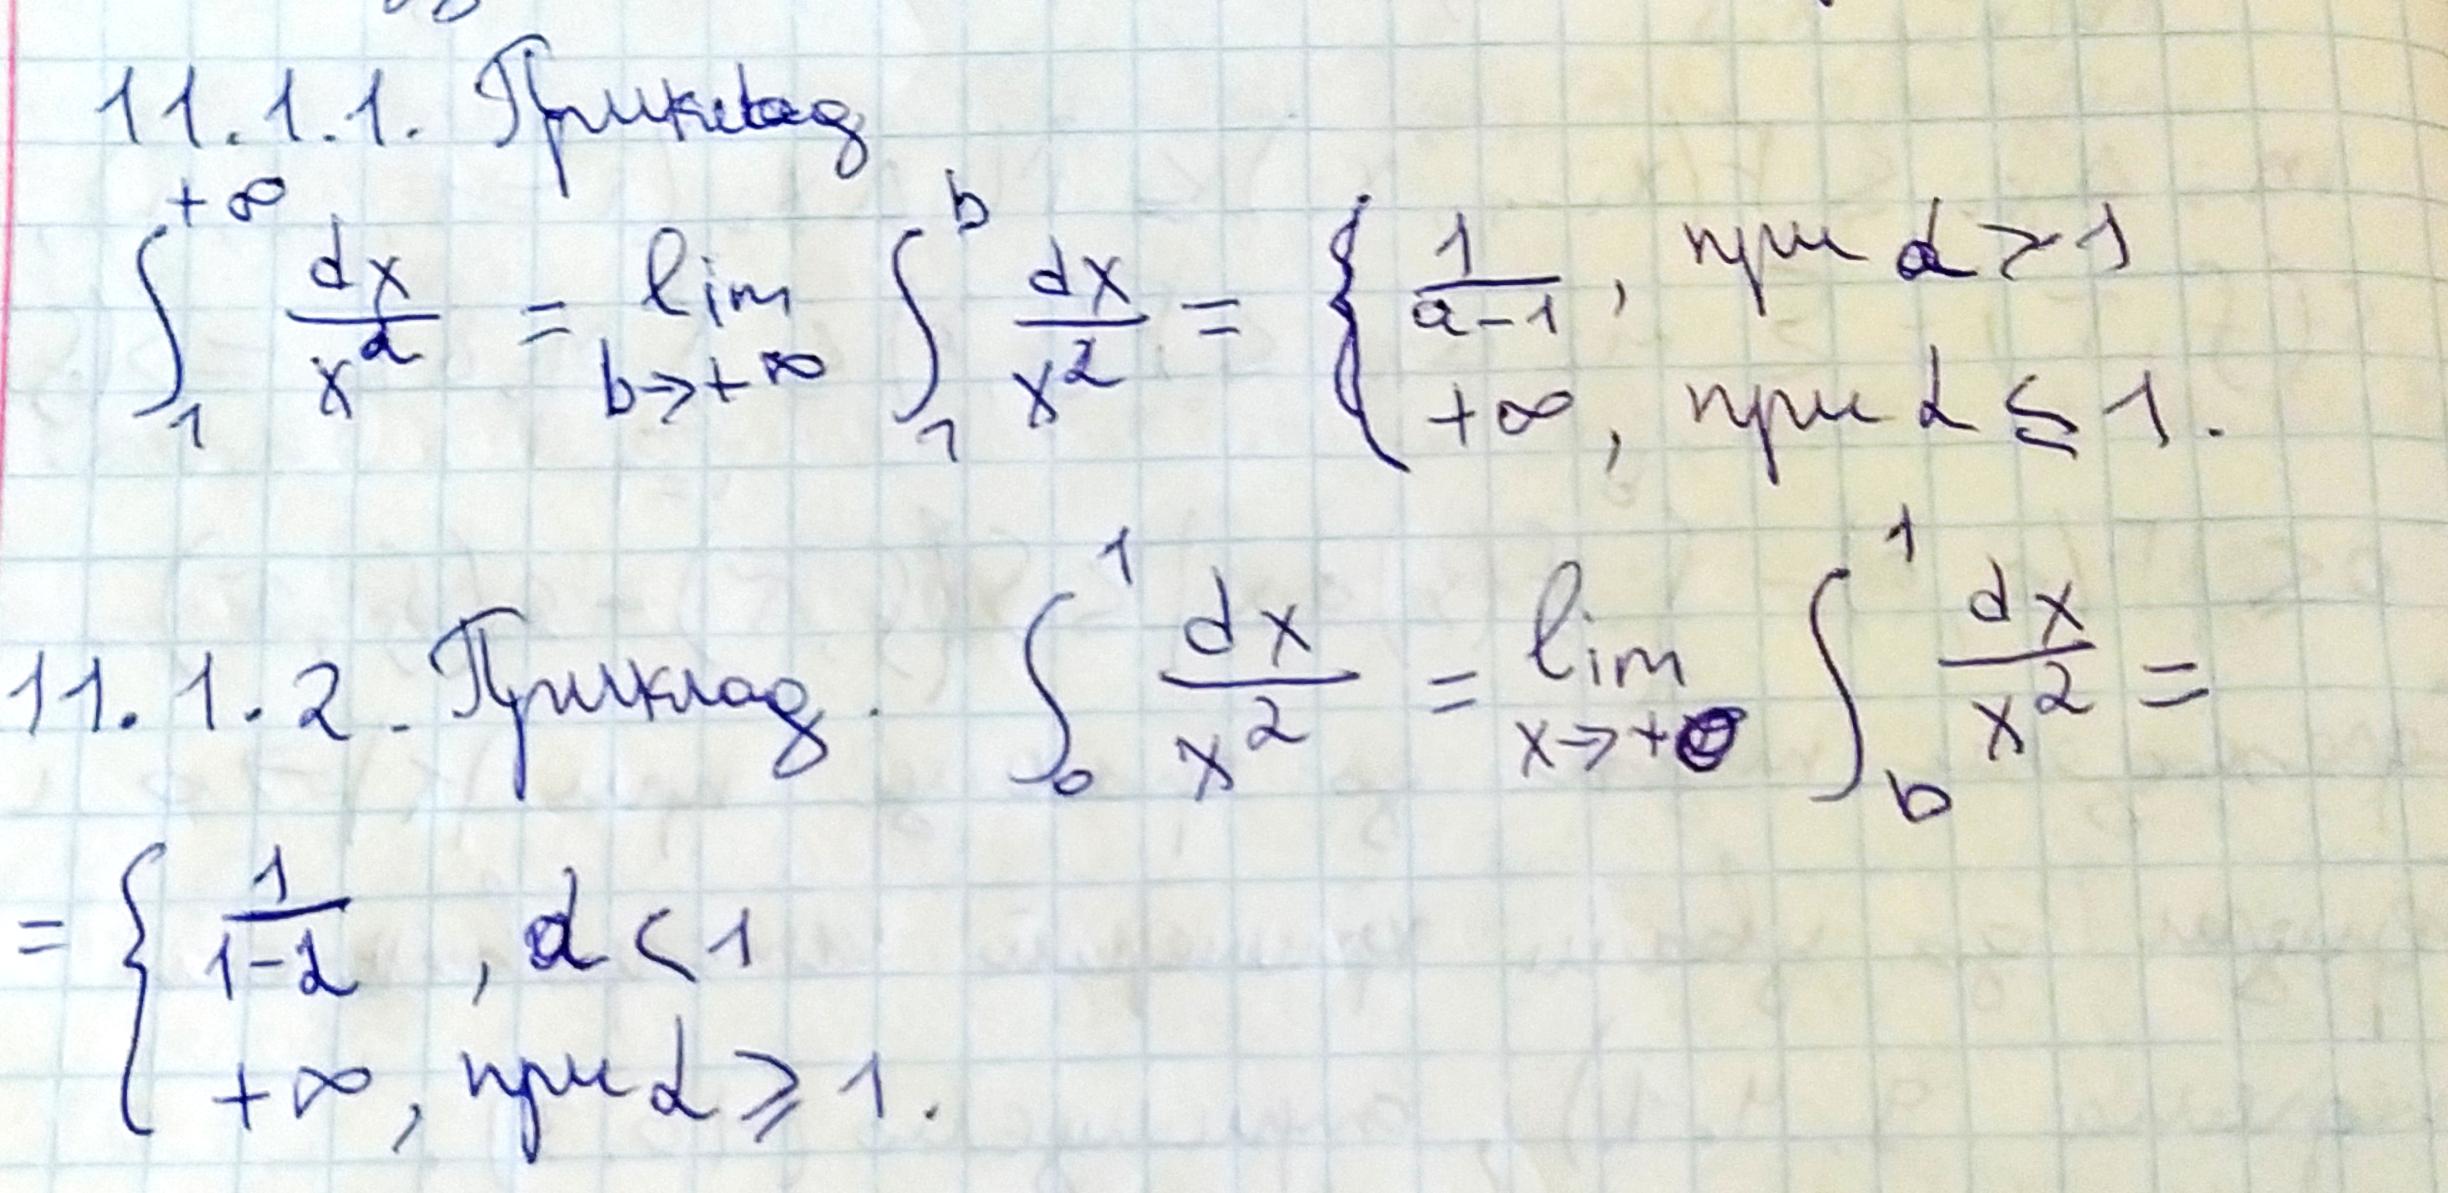 11.1.1. Приклад
∫₁^{+∞} dx/x^α = lim_{b→+∞} ∫₁^b dx/x^2 = { 1/(a-1), при α > 1
+∞, при α ≤ 1.
11.1.2. Приклад. ∫₀^1 dx/x^2 = lim_{x→+0} ∫_b^1 dx/x^2 =
= { 1/(1-α), α < 1
+∞, при α ≥ 1.